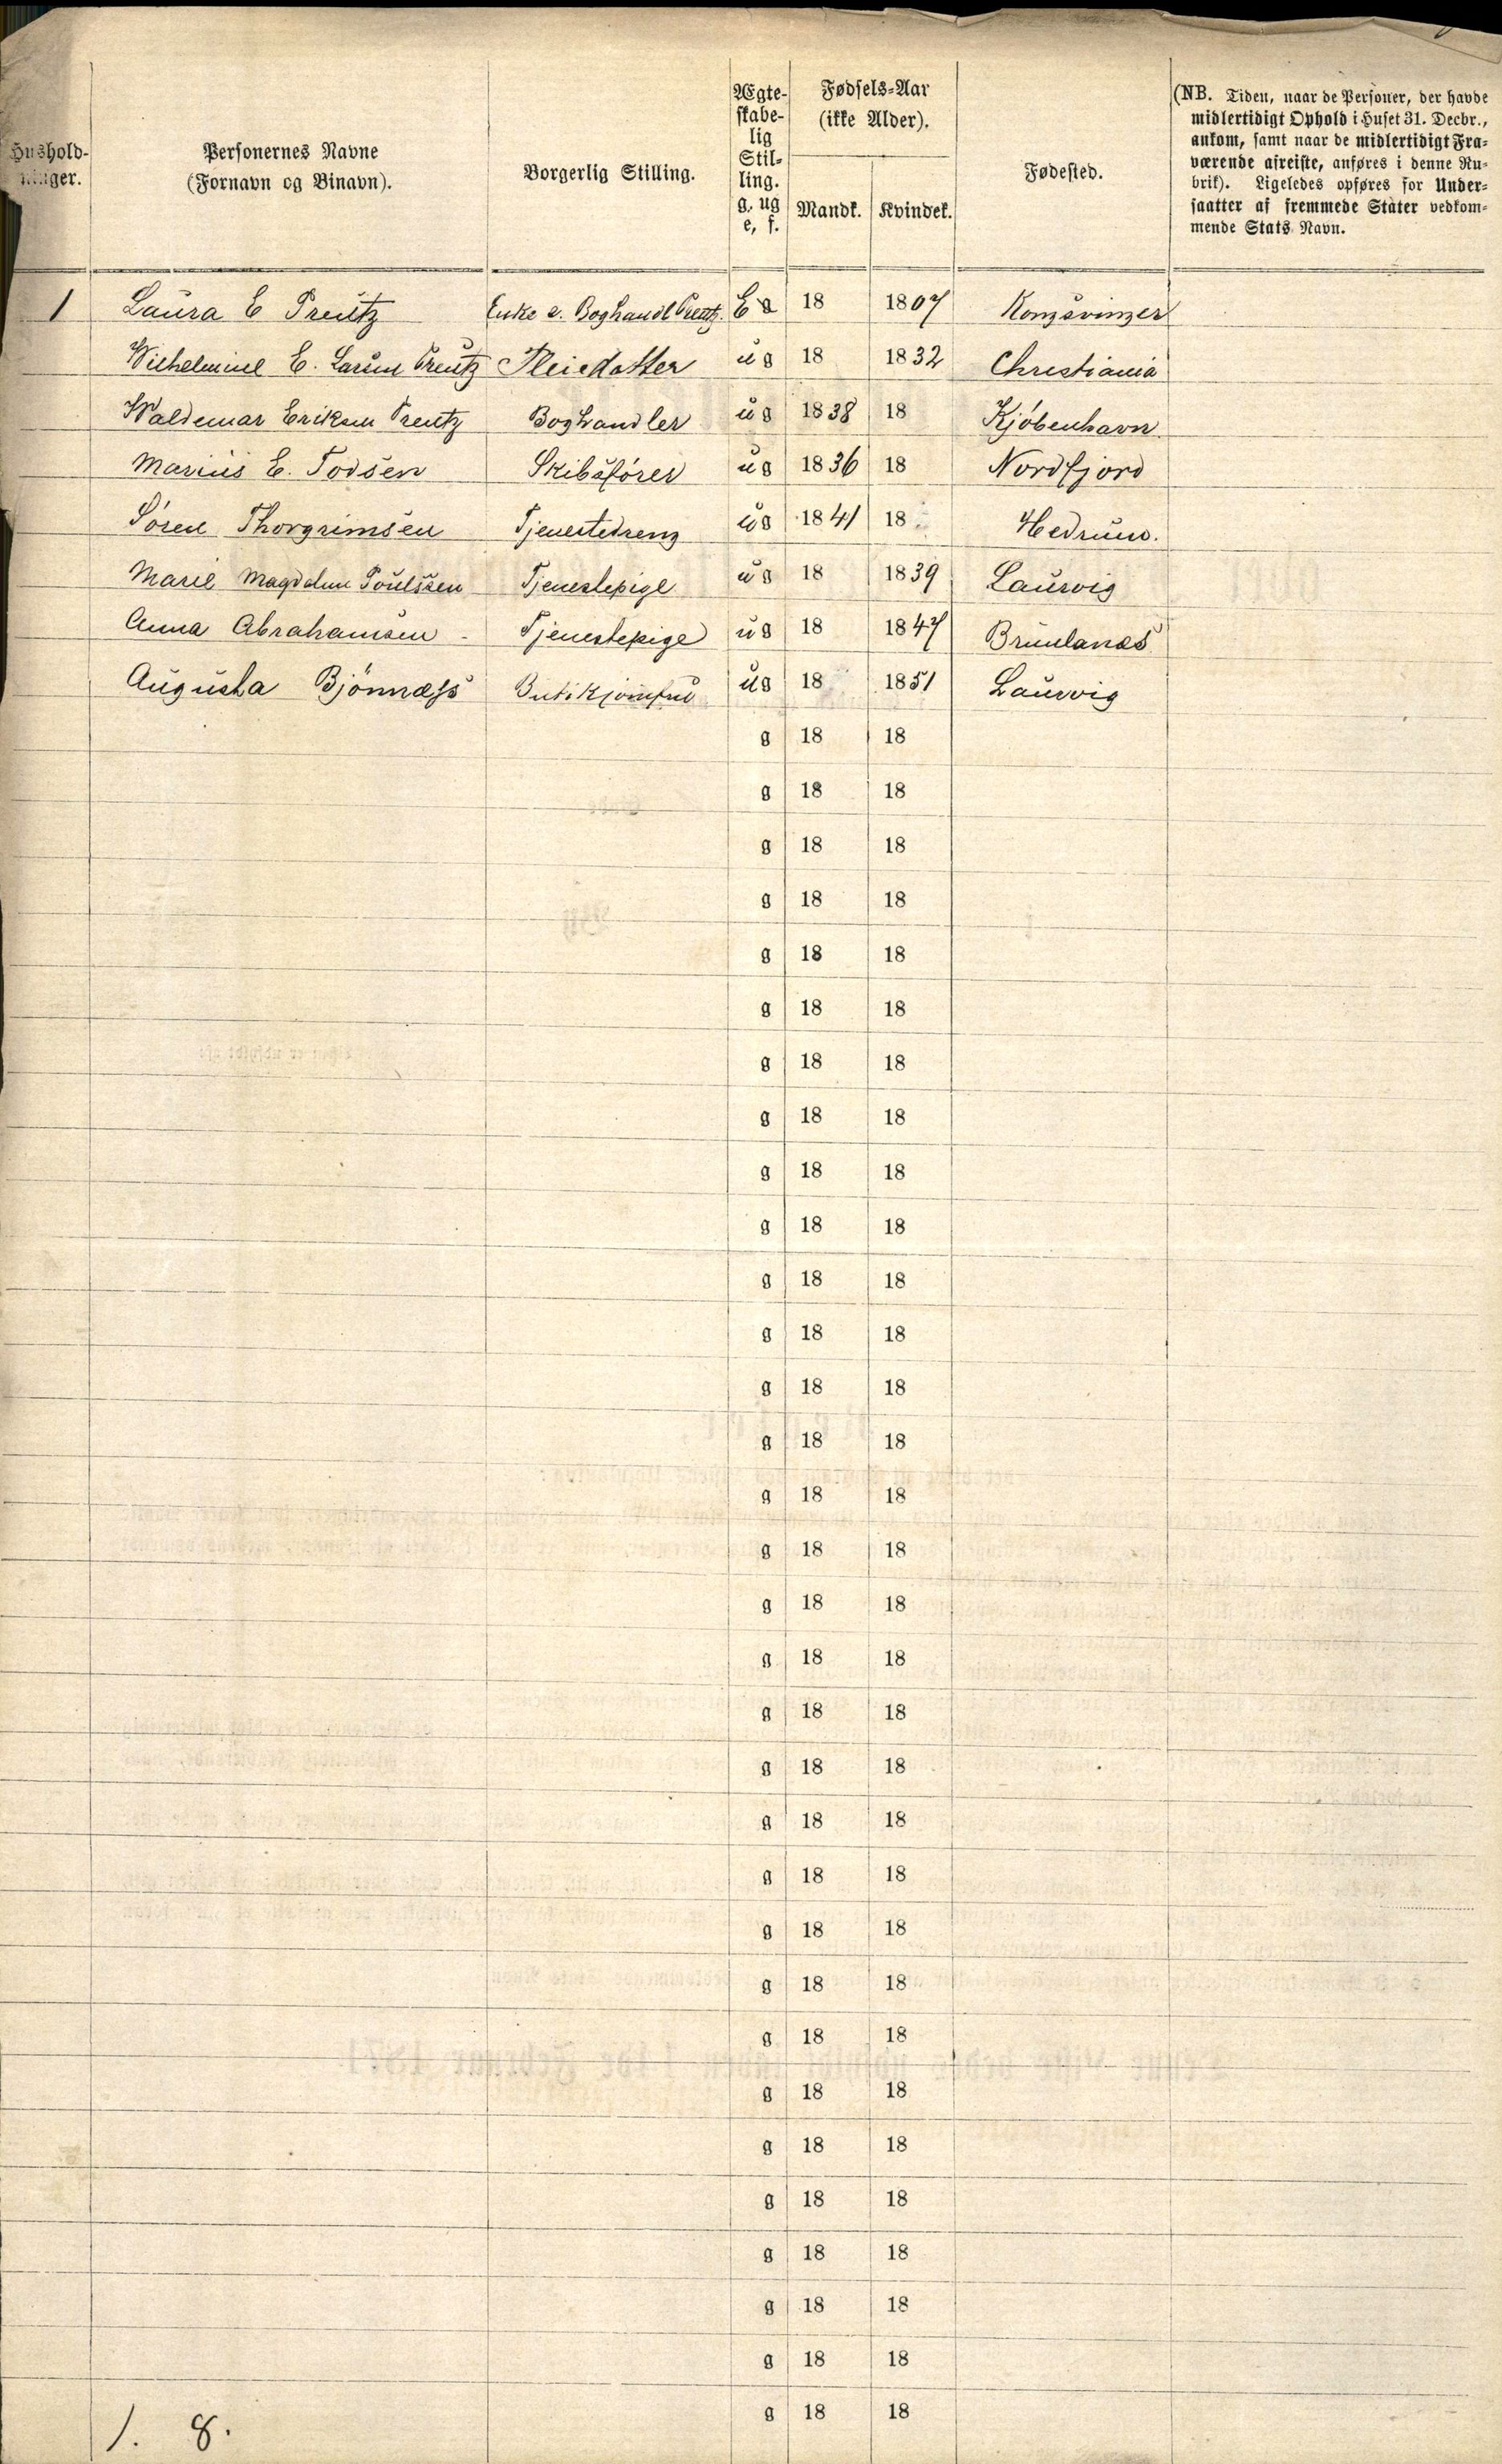 Hushold-
ninger.
Personernes Navne
(Fornavn og Binavn).
Borgerlig Stilling.
Ægte-
skabe-
lig
Stil-
ling.
g, ug
e, f.
Fødsels-Aar
(ikke Alder).
Mandk.
Kvindek.
Fødested.
(NB. Tiden, naar de Personer, der havde
midlertidigt Ophold i Huset 31. Decbr.,
ankom, samt naar de midlertidigt Fra-
værende afreiste, anføres i denne Ru-
brik). Ligeledes opføres for Under-
saatter af fremmede Stater vedkom-
mende Stats Navn.
1 Laura E Preutz Enke e. Boghandl Preutz. E g 18 1807 Kongsvinger
Wilhelmine E. Larum Preutz Pleiedatter ug 18 1832 Christiania
Waldemar Eriksen Preutz Boghandler ug 1838 18 Kjøbenhavn
Marius E. Todsen Skibsfører ug 1836 18 Nordfjord
Søren Thorgrimsen Tjenestedreng ug 1841 18 Hedrum.
Marie Magdalene Poulssen Tjenestepige ug 18 1839 Laurvig
Anna Abrahamsen - Tjenestepige ug 18 1847 Brunlanæs
Augusta Bjönnæss Butikjomfru ug 18 1851 Laurvig
g 18 18
g 18 18
g 18 18
g 18 18
g 18 18
g 18 18
g 18 18
g 18 18
g 18 18
g 18 18
g 18 18
g 18 18
g 18 18
g 18 18
g 18 18
g 18 18
g 18 18
g 18 18
g 18 18
g 18 18
g 18 18
g 18 18
g 18 18
g 18 18
g 18 18
g 18 18
g 18 18
g 18 18
g 18 18
g 18 18
g 18 18
g 18 18
1. 8.